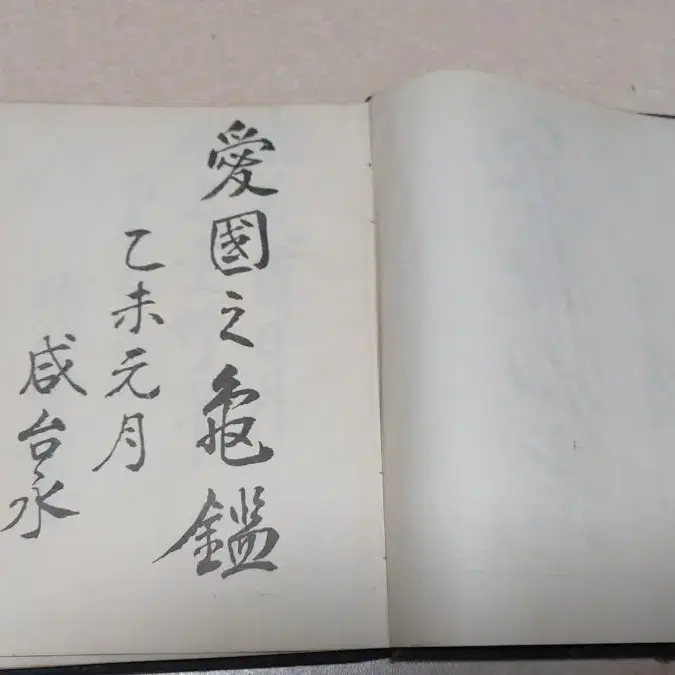 愛國之龜鑑
乙未元月
咸台永